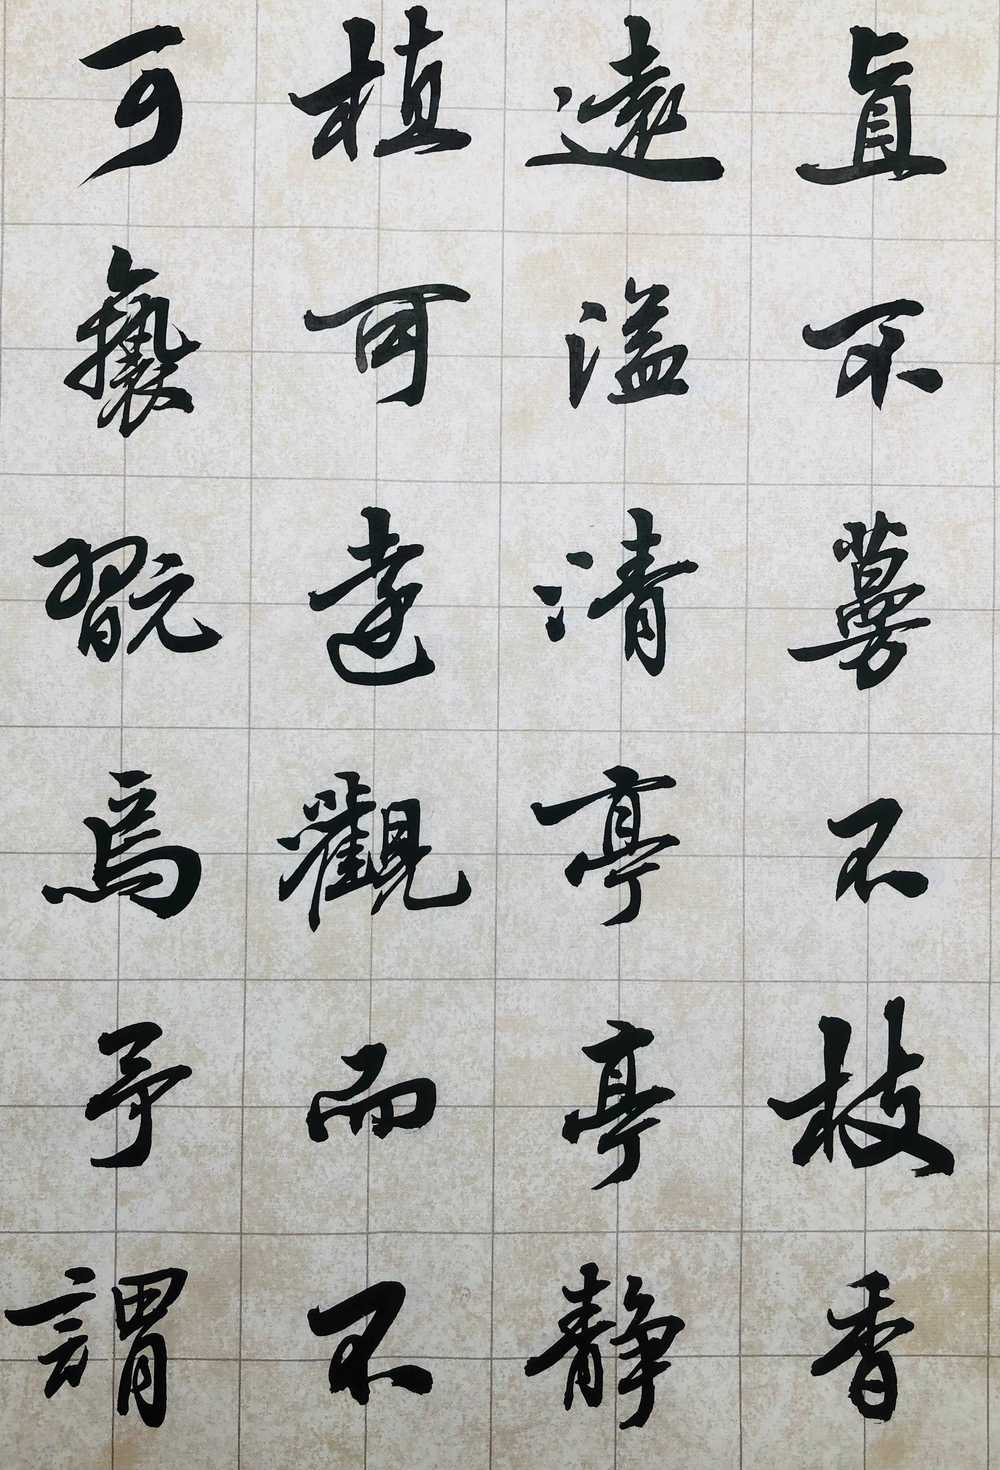 直不蔓不枝香
遠溢清亭亭静
植可遠觀而不
可褻翫焉予謂